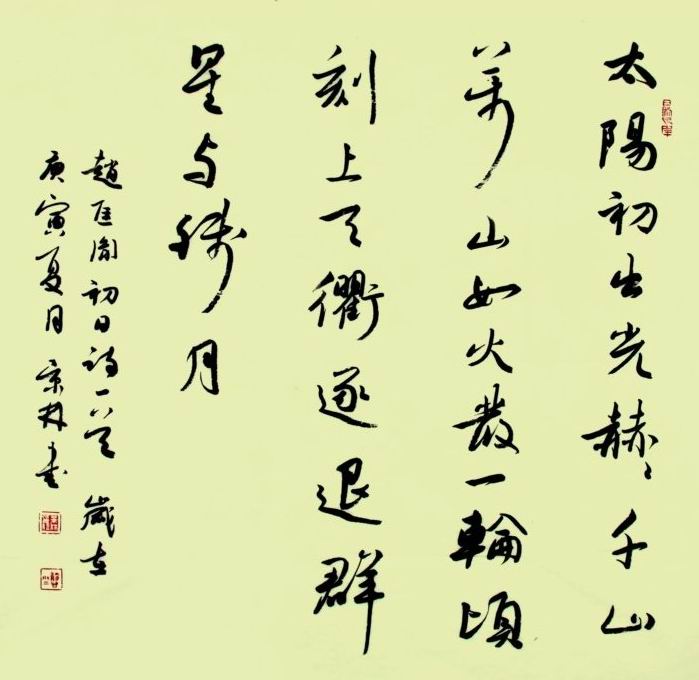 太陽初出光赫〻千山
萬山如火發一輪頃
刻上天衢逐退群
星与殘月
趙匡胤初日詩一首 歲在
庚寅夏月 書